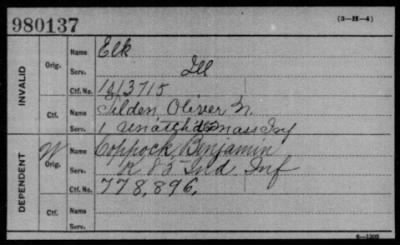 980137
(3-H-4)
INVALID
Orig.
Name
Elk
Serv.
Ill
Ctf. No.
1213715
Ctf.
Name
Tilden Oliver N.
Serv.
1 Unatchd Mass Inf
DEPENDENT
W
Orig.
Name
Coppock Benjamin
Serv.
K 83 Ind Inf
Ctf. No.
778,896,
Ctf.
Name
Serv.